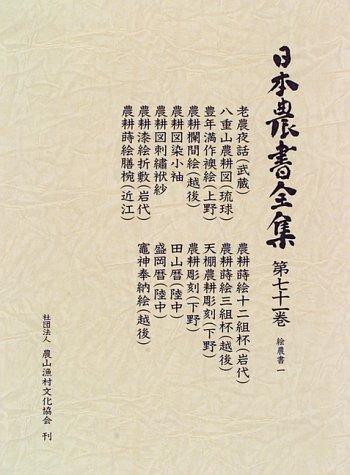 日本農書全集 第七十一巻 絵農書一
老農夜話(武蔵)
八重山農耕図(琉球)
豊年満作襖絵(上野)
農耕欄間絵(越後)
農耕図染小袖
農耕図刺繡袱紗
農耕漆絵折敷(岩代)
農耕蒔絵膳椀(近江)
農耕蒔絵十二組杯(岩代)
農耕蒔絵三組杯(越後)
天棚農耕彫刻(下野)
農耕彫刻(下野)
田山暦(陸中)
盛岡暦(陸中)
竈神奉納絵(越後)
社団法人 農山漁村文化協会 刊